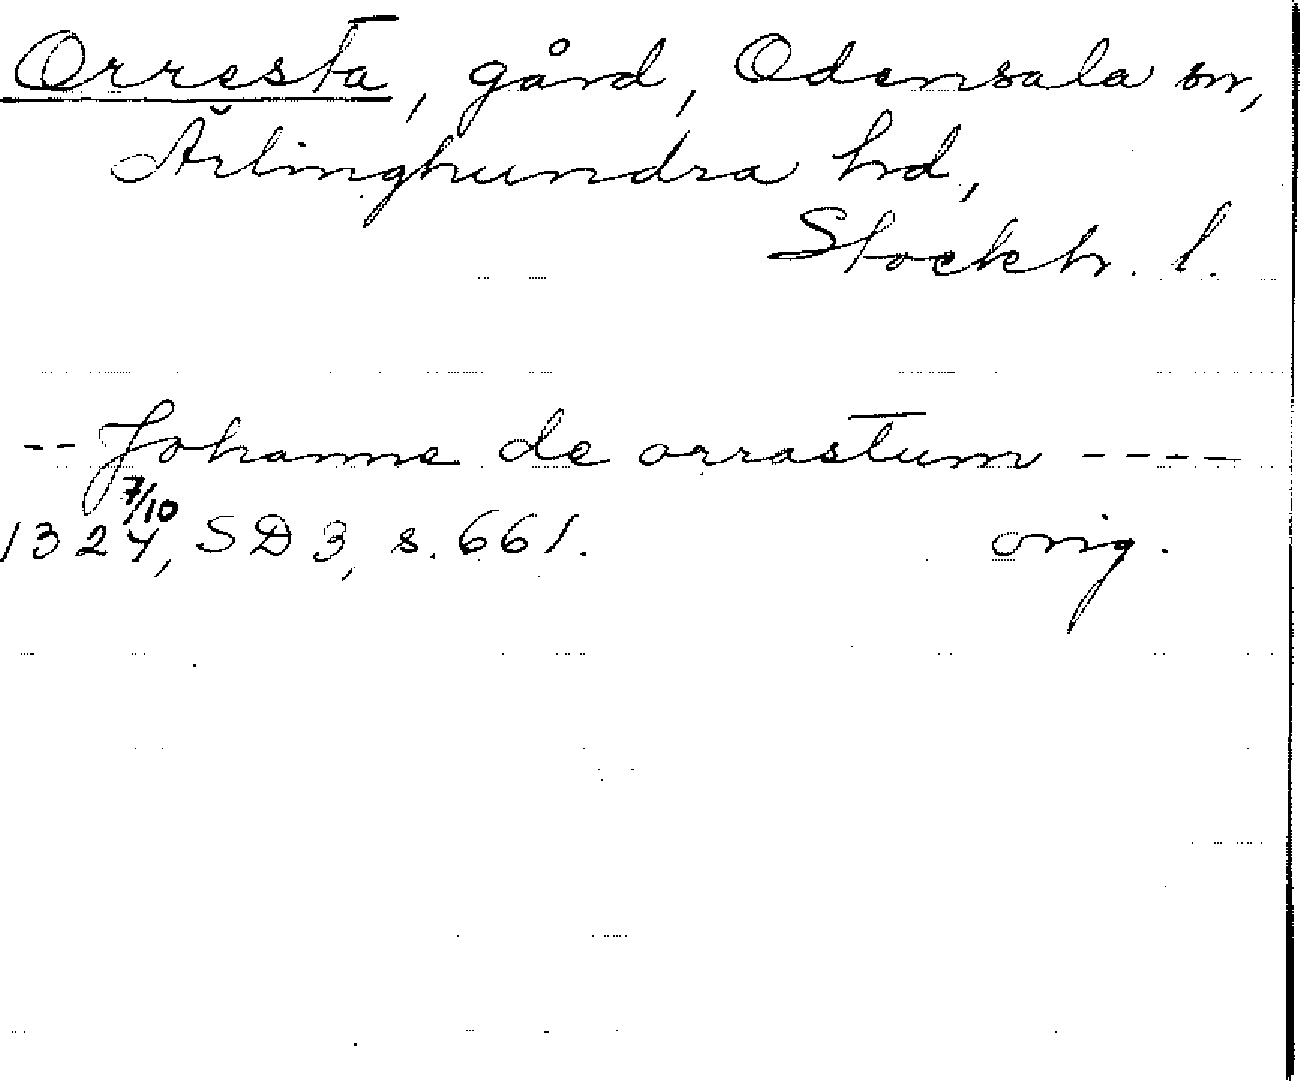 Orresta, gård, Odensala sn,
Ärlinghundra hd,
Stockh. l.
-- Johanne de orrastum ----
7/10
1324, SD 3, s. 661. orig.